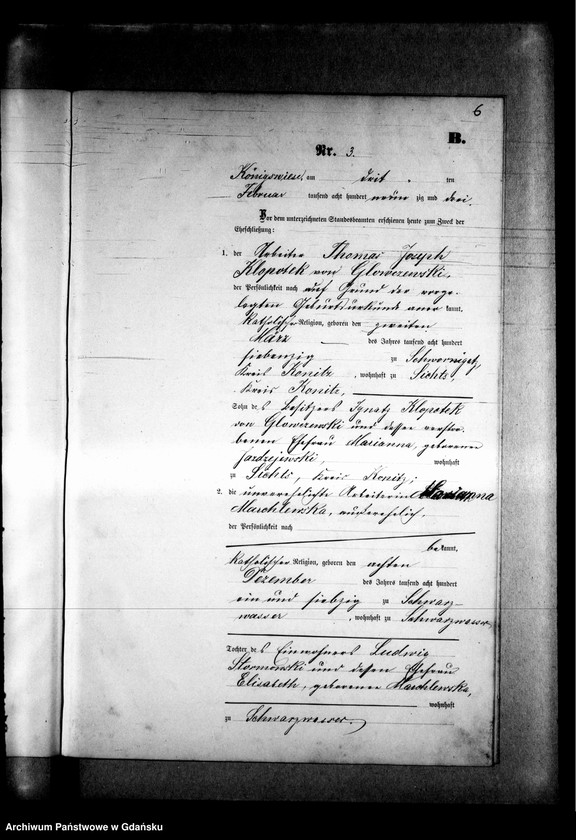 6
B.
Nr. 3.
Königswiese, am drit ten
Februar tausend acht hundert neun zig und drei.
Vor dem unterzeichneten Standesbeamten erschienen heute zum Zweck der
Eheschließung:
1. der Arbeiter Thomas Joseph
Klopotek von Glowczewski,
der Persönlichkeit nach auf Grund der vorge-
legten Geburtsurkunde aner kannt,
katholischer Religion, geboren den zweiten
März des Jahres tausend acht hundert
siebenzig zu
Kreis Konitz, wohnhaft zu
Kreis Konitz,
Sohn des Besitzers Ignatz Klopotek
von Glowczewski und dessen verstor-
benen Ehefrau Marianna, geborenen
wohnhaft
zu Kreis Konitz;
2. die unverehelichte Arbeiterin Marianna
Machlewska, außerehelich,
der Persönlichkeit nach
bekannt,
katholischer Religion, geboren den achten
Dezember des Jahres tausend acht hundert
ein und siebzig zu Schwarz-
wasser, wohnhaft zu Schwarzwasser
Tochter des Einwohners Ludwig
und dessen Ehefrau
Elisabeth, geborenen Machlewska,
wohnhaft
zu Schwarzwasser.
Archiwum Państwowe w Gdańsku